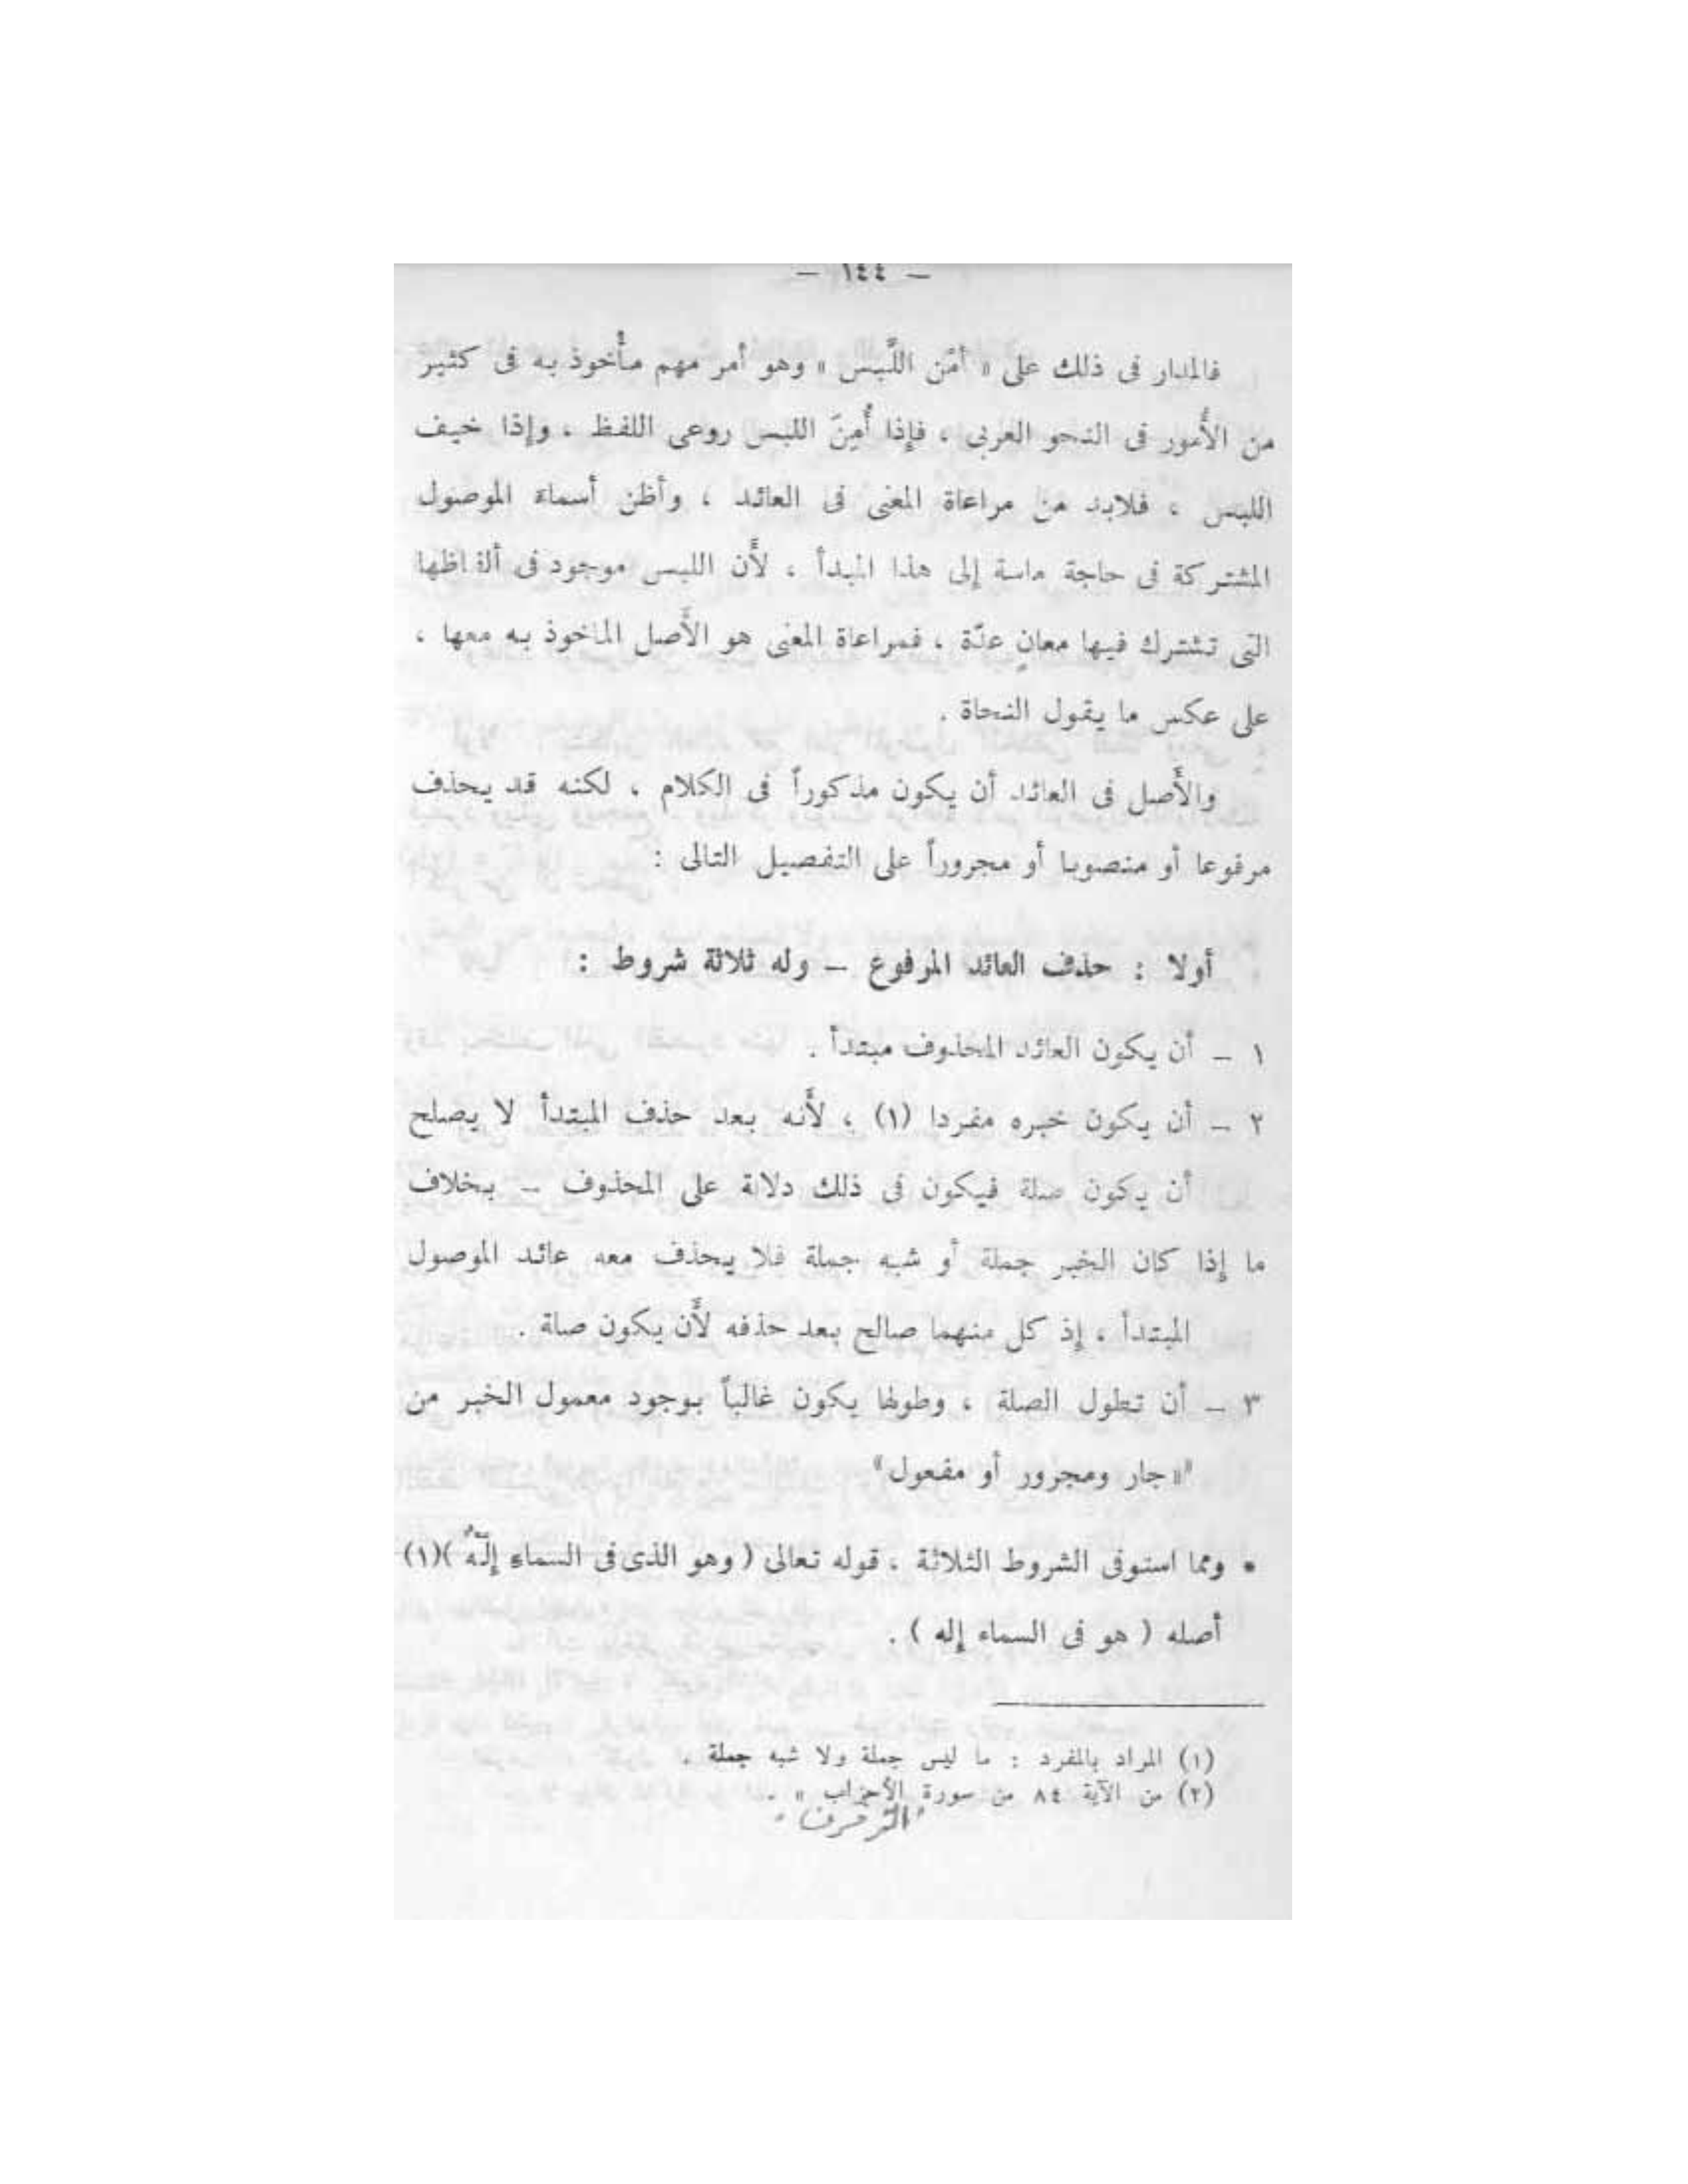 — ١٤٤ —
فالمدار فى ذلك على « أمْن اللَّبس » وهو أمر مهم مأْخوذ به فى كثير
من الأُمور فى النحو العربى ، فإِذا أُمِنَ اللبس روعى اللفظ ، وإِذا خيف
اللبس ، فلابد من مراعاة المعنى فى العائد ، وأظن أسماءَ الموصول
المشتركة فى حاجة ماسة إلى هذا المبدأ ، لأَن اللبس موجود فى ألفاظها
التى تشترك فيها معانٍ عدّة ، فمراعاة المعنى هو الأَصل المأخوذ به معها ،
على عكس ما يقول النحاة .
والأَصل فى العائد أن يكون مذكوراً فى الكلام ، لكنه قد يحذف
مرفوعا أو منصوبا أو مجروراً على التفصيل التالى :
أولا : حذف العائد المرفوع – وله ثلاثة شروط :
١ – أن يكون العائد المحذوف مبتدأ .
٢ – أن يكون خبره مفردا (١) ، لأَنه بعد حذف المبتدأ لا يصلح
أن يكون صلة فيكون فى ذلك دلالة على المحذوف – بخلاف
ما إذا كان الخبر جملة أو شبه جملة فلا يحذف معه عائد الموصول
المبتدأ ، إذ كل منهما صالح بعد حذفه لأَن يكون صلة .
٣ – أن تطول الصلة ، وطولها يكون غالباً بوجود معمول الخبر من
«جار ومجرور أو مفعول»
• ومما استوفى الشروط الثلاثة ، قوله تعالى ( وهو الذى فى السماءِ إِلَهٌ )(١)
أصله ( هو فى السماء إله ) .
(١) المراد بالمفرد : ما ليس جملة ولا شبه جملة .
(٢) من الآية ٨٤ من سورة الأحزاب » .
"الزخرف"